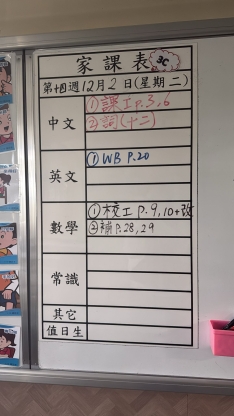 家課表 3C
第十四週 12月2日(星期二)
中文
①課工 p.3,6
②詞(十二)
英文
① WB p.20
數學
①校工 p.9,10+改
②補 p.28,29
常識
其它
值日生